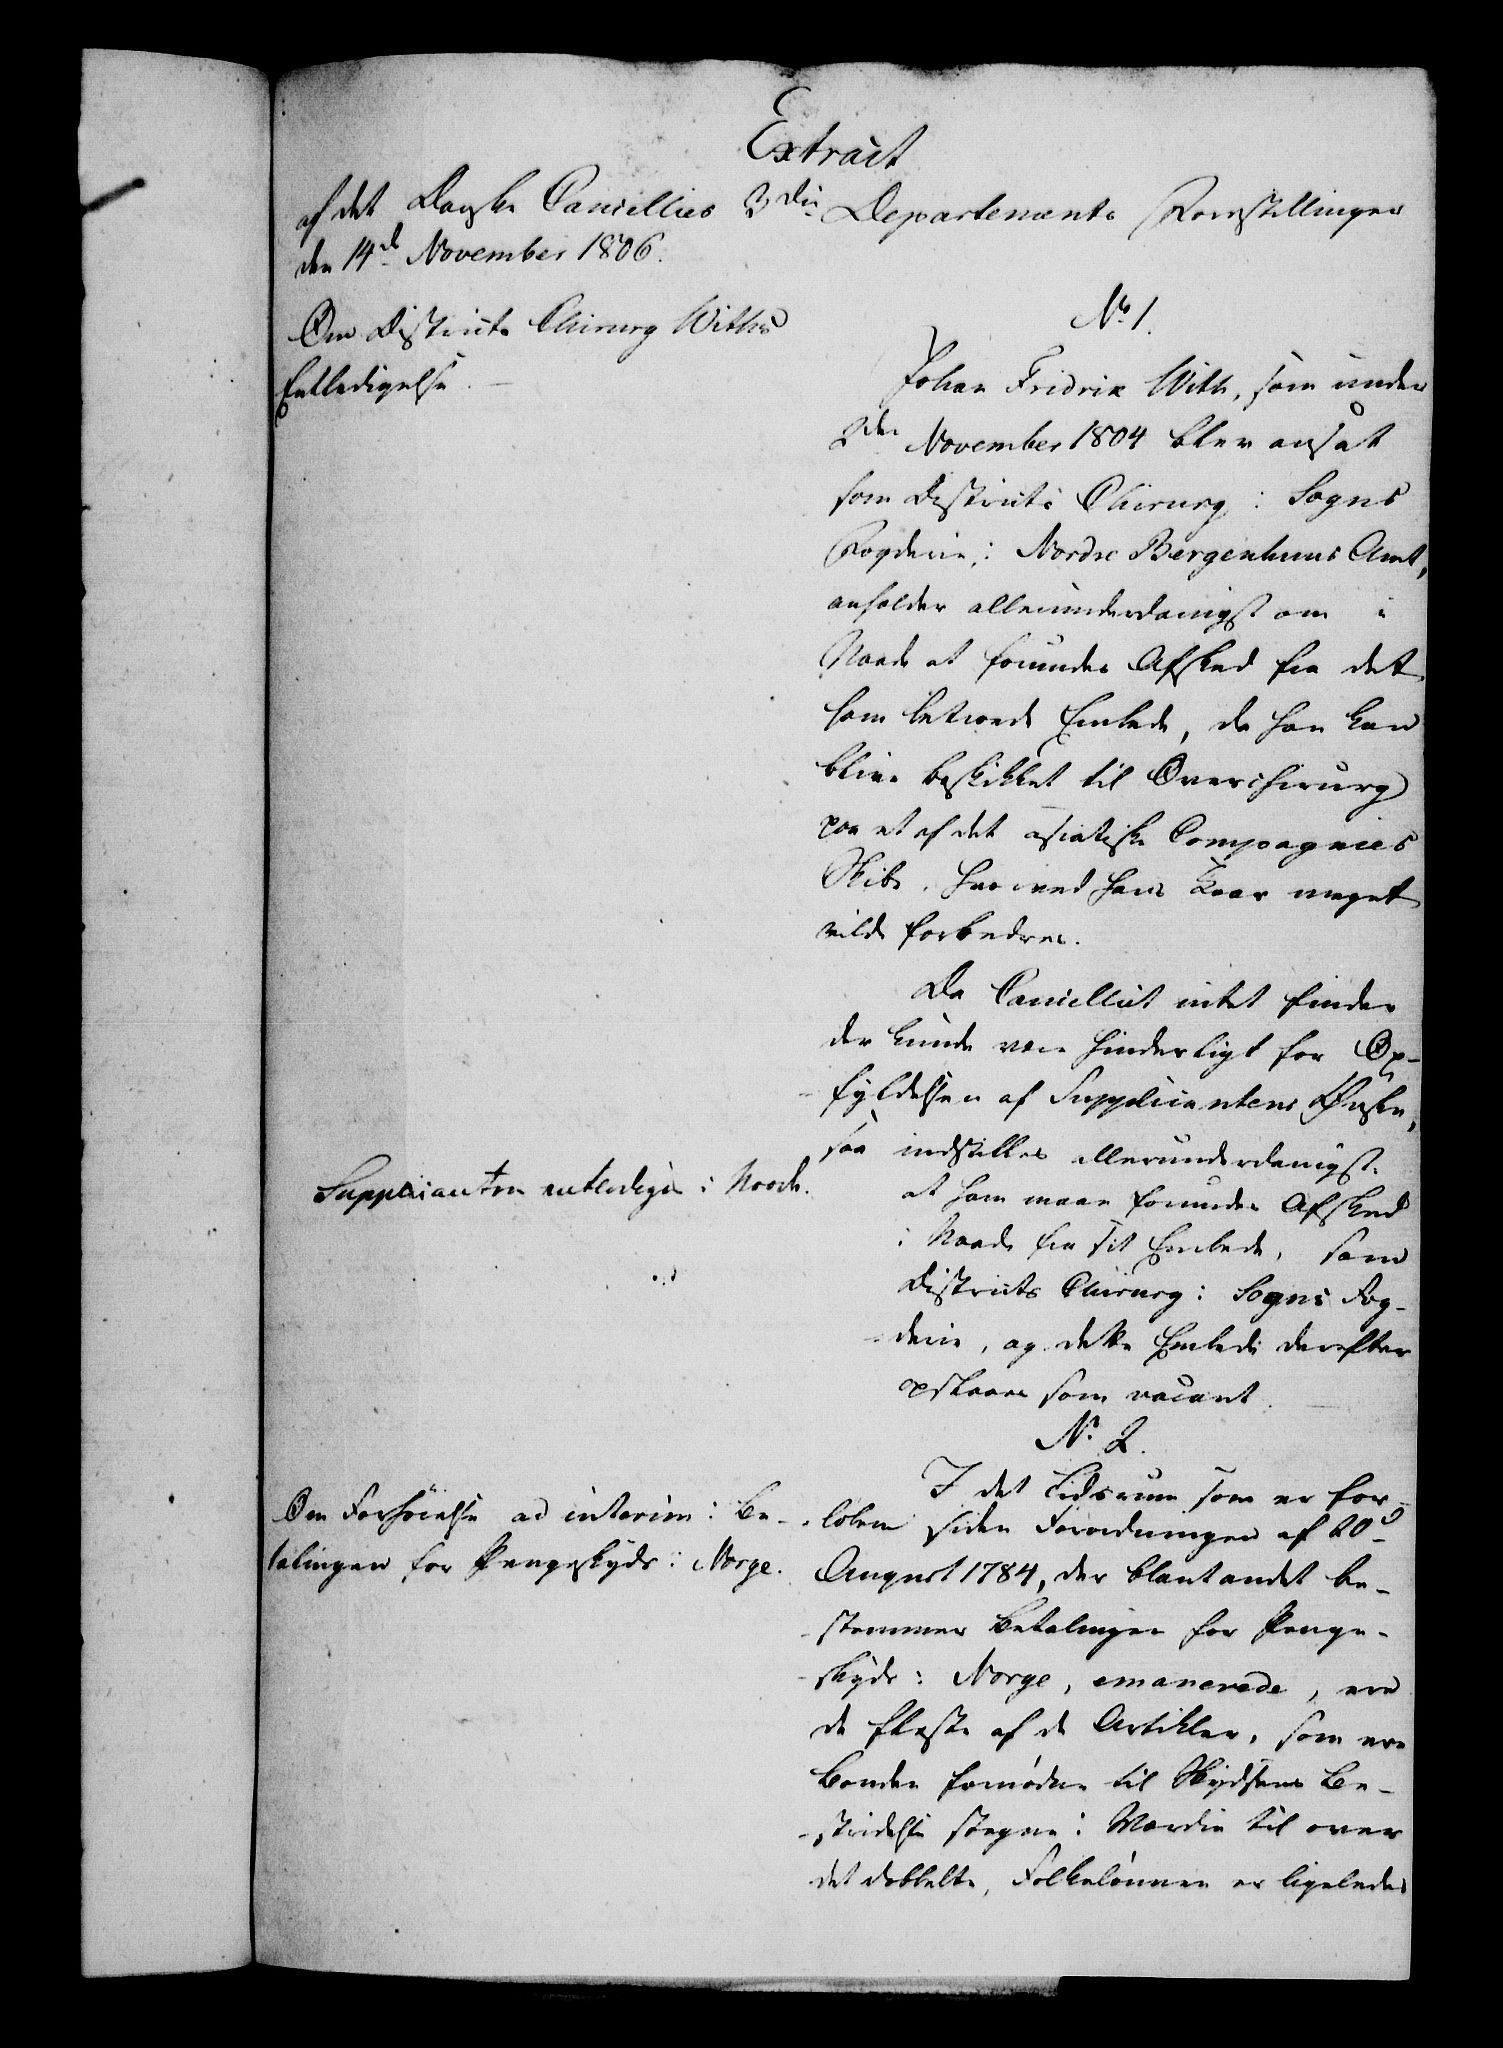 Extract
af det Danske Cancellies 3die Departements Forestillinger
den 14de November 1806.
Om Districts Chirurg Withs
Entledigelse. —
No 1.
Johan Fridrix With, som under
2den November 1804 blev ansat
som Districts Chirurg i Sogns
Fogderie i Nordre Bergenhuus Amt,
anholder allerunderdanigst om i
Naade at forundes Afsked fra det
ham betroede Embede, da han kan
blive beskikket til Overchirurg
paa et af det asiatiske Compagnies
Skibe, hvorved hans Kaar meget
vilde forbedres.
Da Cancelliet intet finder
der kunde være hinderligt for Op-
fyldelsen af Supplicantens Ønske,
saa indstilles allerunderdanigst,
Supplicanten entlediges i Naade.
at ham maae forundes Afsked
i Naade fra sit Embede, som
Districts Chirurg i Sogns Fog-
derie, og dette Embede derefter
opslaaes som vacant.
No 2.
Om Forhöielse ad interim i Be-
talingen for Pengeskyds i Norge.
I det Tidsrum som er for-
löben siden Forordningen af 20d
August 1784, der blant andet be-
stemmer Betalingen for Penge-
skyds i Norge, emanerede, ere
de fleste af de Artikler, som ere
Bonden fornödne til Skydsens Be-
stridelse stegne i Værdie til over
det dobbelte, Folkelönnen er ligeledes